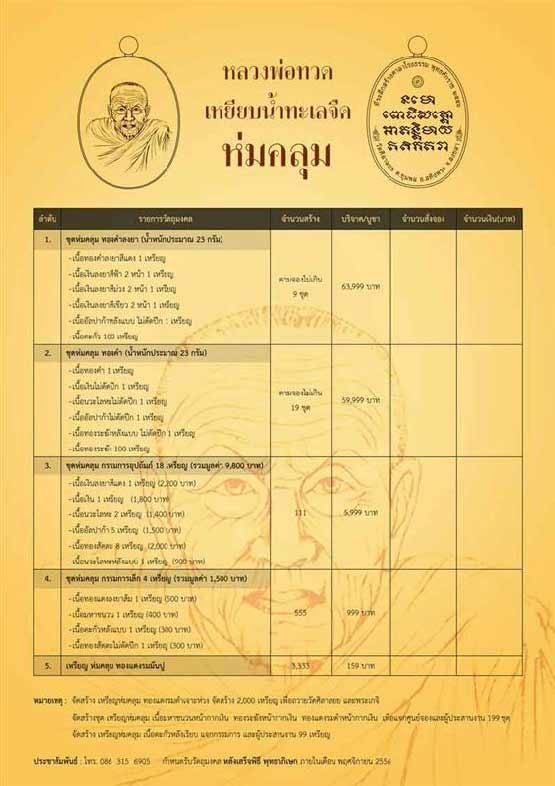 หลวงพ่อทวด
เหยียบน้ำทะเลจืด
ห่มคลุม
นะโม
ลำดับ รายการวัตถุมงคล จำนวนสร้าง บริจาค/บูชา จำนวนสั่งจอง จำนวนเงิน(บาท)
1. ชุดห่มคลุม ทองคำลงยา (น้ำหนักประมาณ 23 กรัม)
-เนื้อทองคำลงยาสีแดง 1 เหรียญ
-เนื้อเงินลงยาสีฟ้า 2 หน้า 1 เหรียญ
-เนื้อเงินลงยาสีม่วง 2 หน้า 1 เหรียญ
-เนื้อเงินลงยาสีเขียว 2 หน้า 1 เหรียญ
-เนื้ออัลปาก้าหลังแบบ ไม่ตัดปีก 1 เหรียญ
-เนื้อตะกั่ว 100 เหรียญ
ตามจองไม่เกิน
9 ชุด
63,999 บาท
2. ชุดห่มคลุม ทองคำ (น้ำหนักประมาณ 23 กรัม)
-เนื้อทองคำ 1 เหรียญ
-เนื้อเงินไม่ตัดปีก 1 เหรียญ
-เนื้อนวะโลหะไม่ตัดปีก 1 เหรียญ
-เนื้ออัลปาก้าไม่ตัดปีก 1 เหรียญ
-เนื้อทองระฆังหลังแบบ ไม่ตัดปีก 1 เหรียญ
-เนื้อทองระฆัง 100 เหรียญ
ตามจองไม่เกิน
19 ชุด
59,999 บาท
3. ชุดห่มคลุม กรรมการอุปถัมภ์ 18 เหรียญ (รวมมูลค่า 9,800 บาท)
-เนื้อเงินลงยาสีแดง 1 เหรียญ (2,200 บาท)
-เนื้อเงิน 1 เหรียญ (1,800 บาท)
-เนื้อนวะโลหะ 2 เหรียญ (1,400 บาท)
-เนื้ออัลปาก้า 5 เหรียญ (1,500 บาท)
-เนื้อทองสัตตะ 8 เหรียญ (2,000 บาท)
-เนื้อนวะโลหะหลังแบบ 1 เหรียญ (900 บาท)
111
5,999 บาท
4. ชุดห่มคลุม กรรมการเล็ก 4 เหรียญ (รวมมูลค่า 1,500 บาท)
-เนื้อทองแดงลงยาส้ม 1 เหรียญ (500 บาท)
-เนื้อมหาชนวน 1 เหรียญ (400 บาท)
-เนื้อตะกั่วหลังแบบ 1 เหรียญ (300 บาท)
-เนื้อทองสัตตะไม่ตัดปีก 1 เหรียญ (300 บาท)
555
999 บาท
5. เหรียญ ห่มคลุม ทองแดงรมมันปู 3,333 159 บาท
หมายเหตุ : จัดสร้าง เหรียญห่มคลุม ทองแดงรมดำเจาะห่วง จัดสร้าง 2,000 เหรียญ เพื่อถวายวัดศิลาลอย และพระเกจิ
จัดสร้างชุด เหรียญห่มคลุม เนื้อมหาชนวนหน้ากากเงิน ทองระฆังหน้ากากเงิน ทองแดงรมดำหน้ากากเงิน เพื่อแจกศูนย์จองและผู้ประสานงาน 199 ชุด
จัดสร้าง เหรียญห่มคลุม เนื้อตะกั่วหลังเรียบ แจกกรรมการ และผู้ประสานงาน 99 เหรียญ
ประชาสัมพันธ์ : โทร. 086 315 6905 กำหนดรับวัตถุมงคล หลังเสร็จพิธี พุทธาภิเษก ภายในเดือน พฤศจิกายน 2556